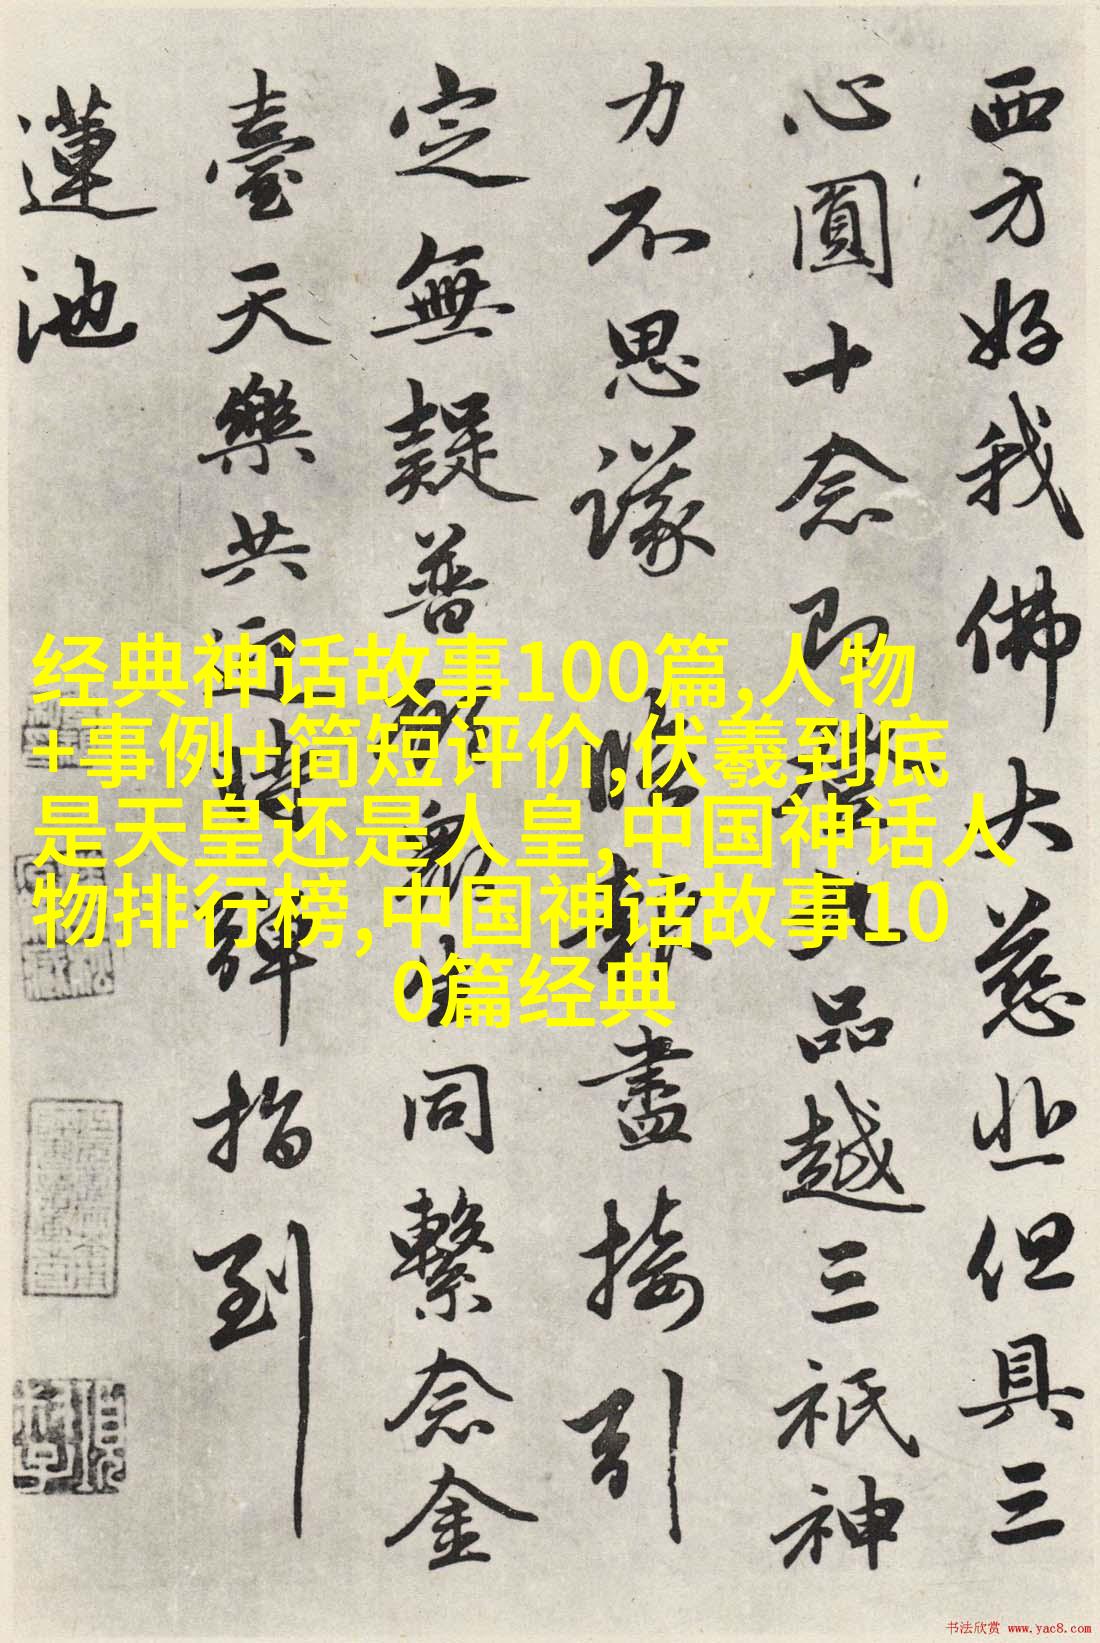 西方好我佛大慈悲但具三
心圓十念即登九品越三祇神
力不思議 臨報盡接引
定無疑普勸眾生同繫念金
臺天樂共迎時彈指到
蓮池
经典神话故事100篇,人物
+事例+简短评价,伏羲到底
是天皇还是人皇,中国神话人
物排行榜,中国神话故事10
0篇经典
书法欣赏 www.yac8.com